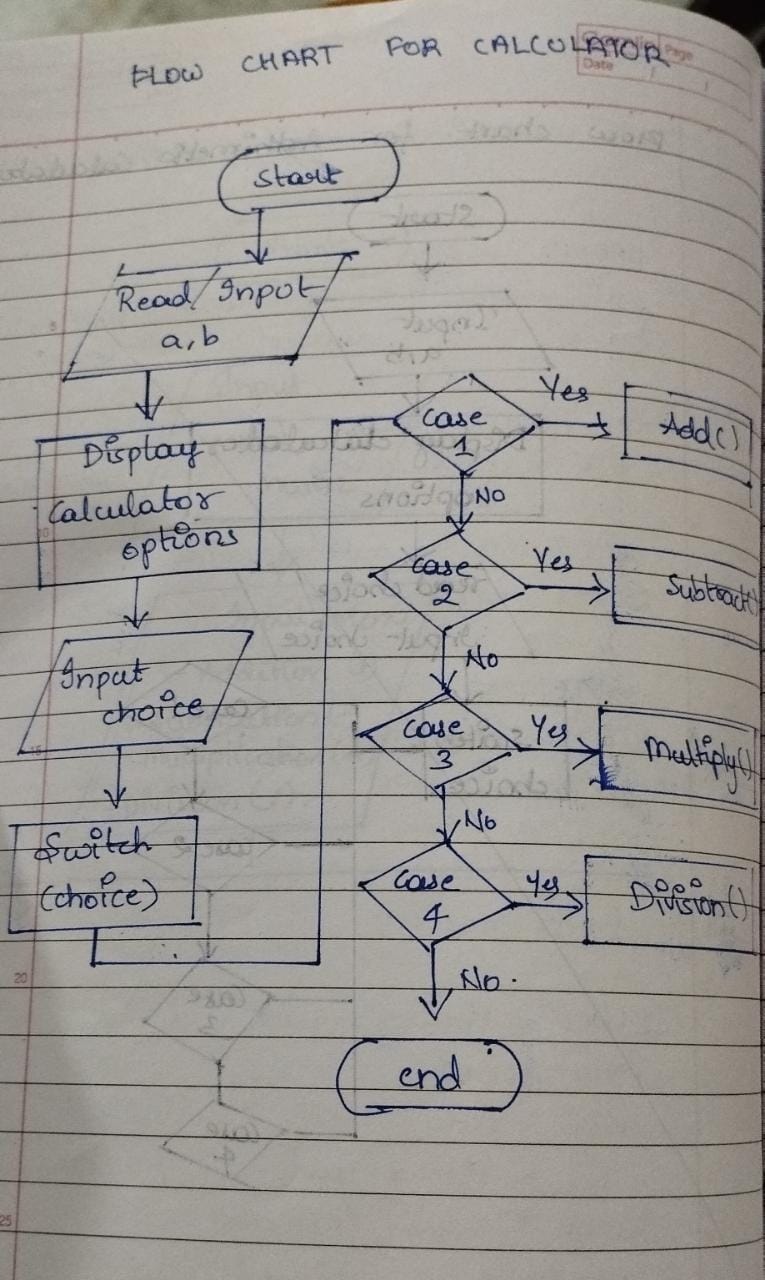 FLOW CHART FOR CALCULATOR
Page
Date
Start
Read/Input
a,b
Display
Calculator
options
Input
choice
Switch
(choice)
Case
1
Yes
Add()
NO
Case
2
Yes
Subtract()
No
Case
3
Yes
Multiply()
No
Case
4
Yes
Division()
No.
end
5
15
20
25